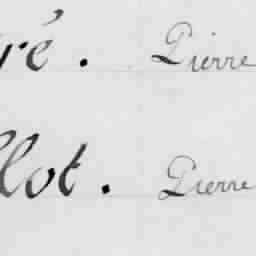 ré. Pierre
llot. Pierre